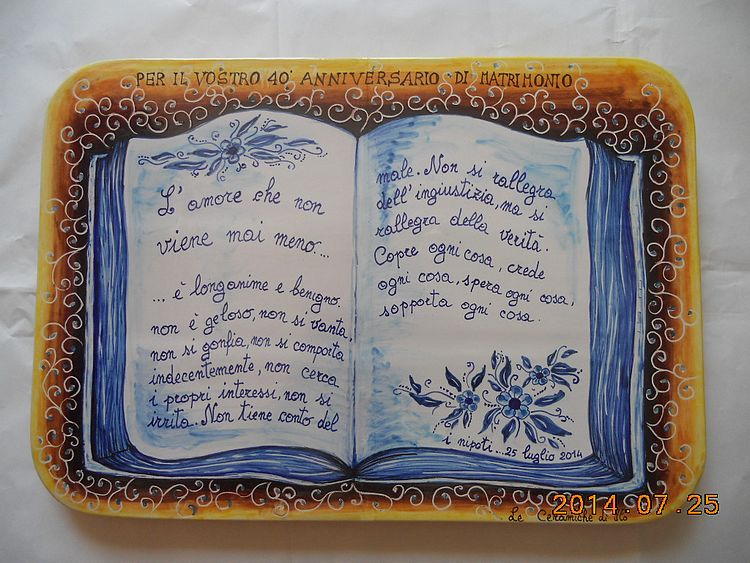 PER IL VOSTRO 40° ANNIVERSARIO DI MATRIMONIO
L'amore che non
viene mai meno...
... è longanime e benigno.
non è geloso, non si vanta,
non si gonfia, non si comporta
indecentemente, non cerca
i propri interessi, non si
irrita. Non tiene conto del
male. Non si rallegra
dell'ingiustizia, ma si
rallegra della verità.
Copre ogni cosa, crede
ogni cosa, spera ogni cosa,
sopporta ogni cosa.
i nipoti... 25 luglio 2014
Le Ceramiche di
2014.07.25